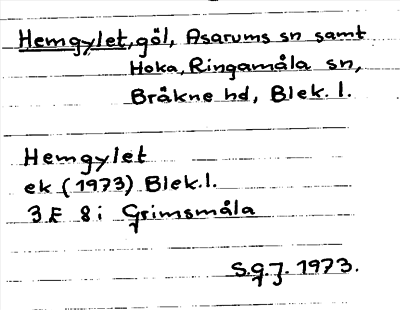 Hemgylet, göl, Asarums sn samt
Hoka, Ringamåla sn,
Bräkne hd, Blek. l.
Hemgylet
ek (1973) Blek.l.
3 F 8 i Grimsmåla
S.g.J. 1973.